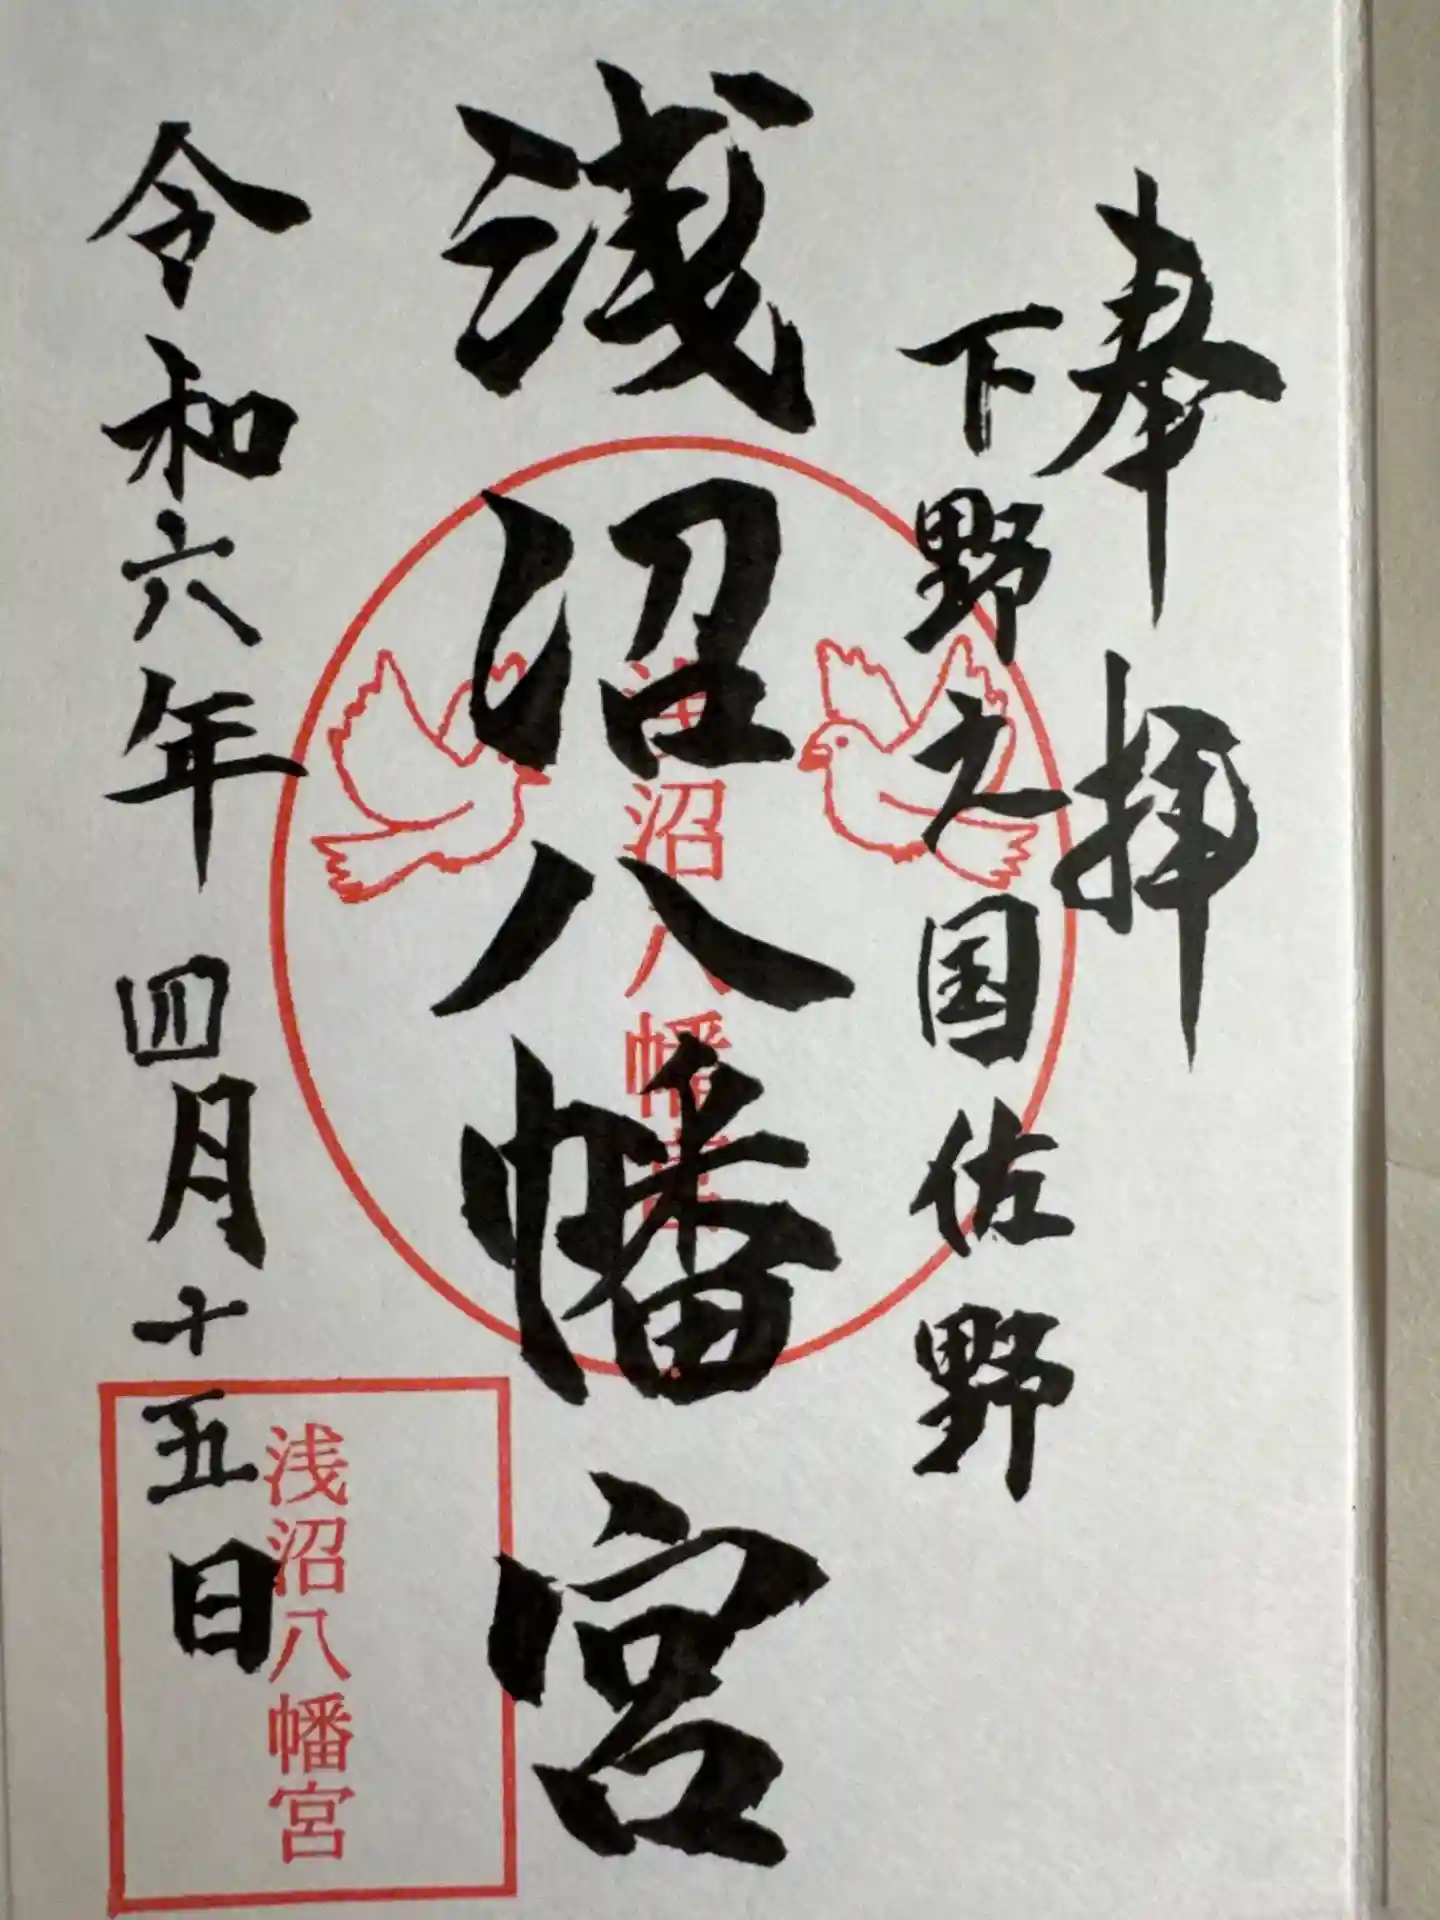 奉拝
下野之国佐野
浅沼八幡宮
浅沼八幡宮
令和六年四月十五日
浅沼八幡宮